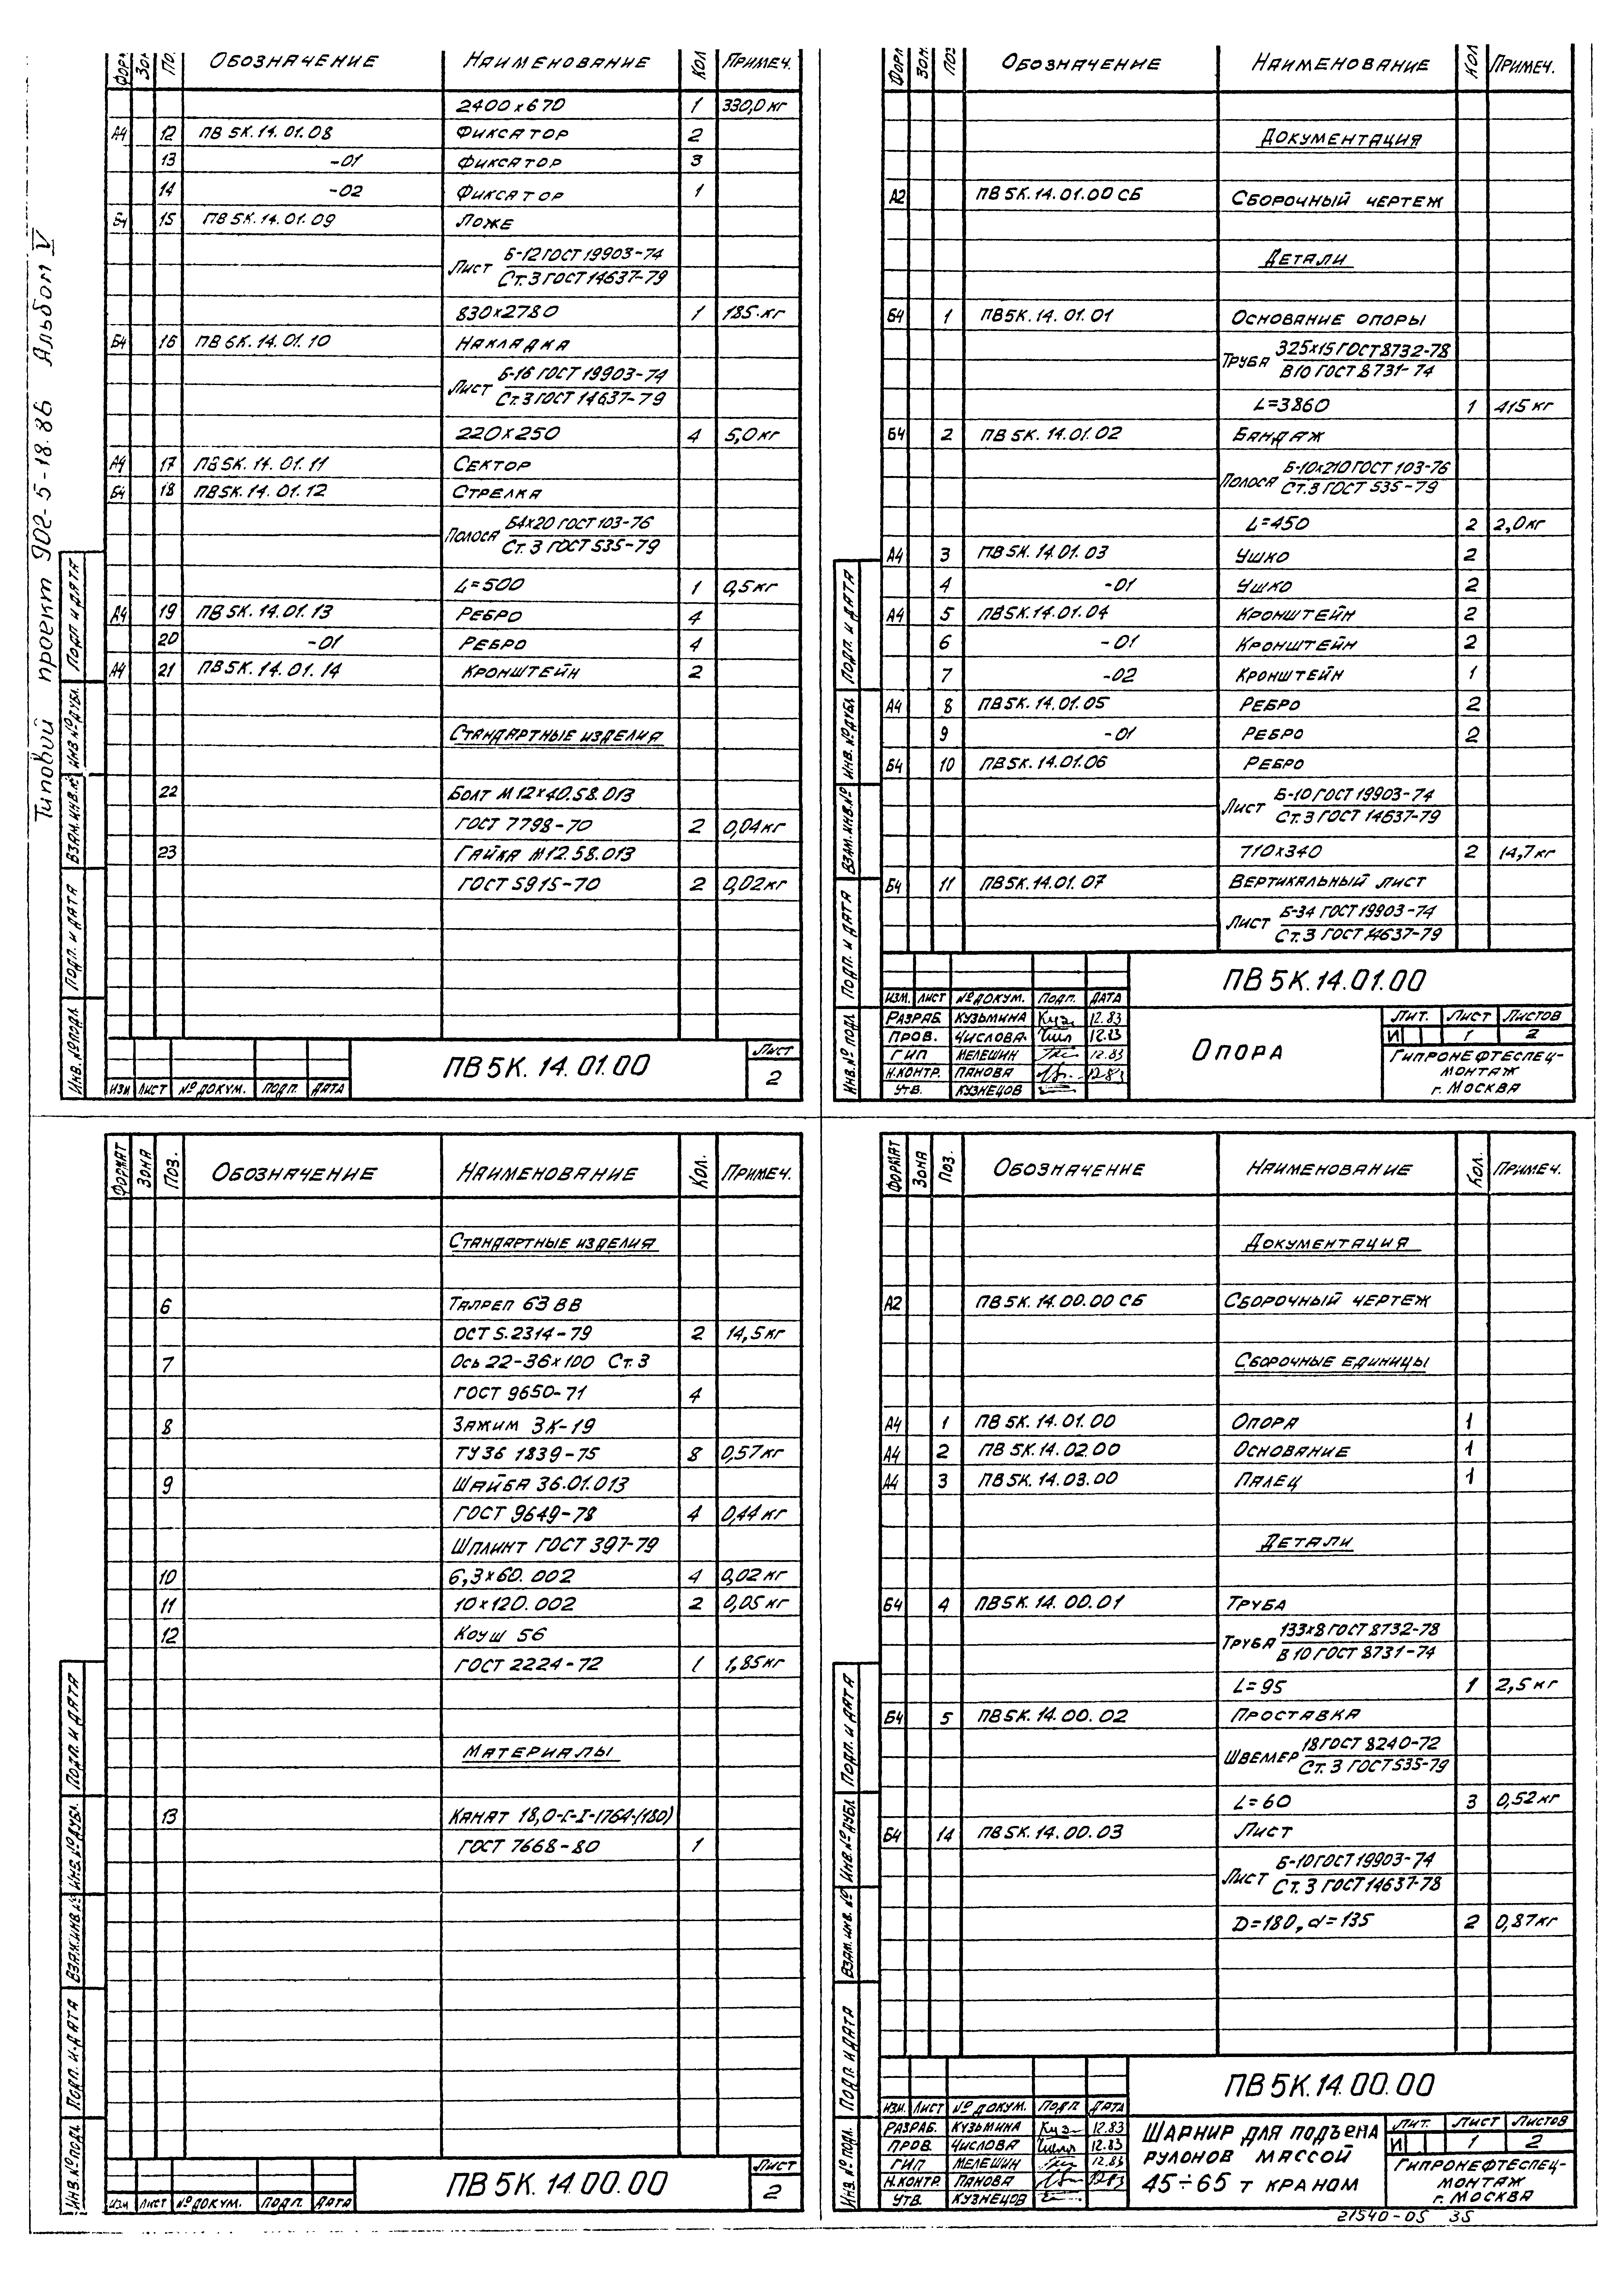 Типовой проект 902-5-18.86 Альбом V
Обозначение Наименование Кол Примеч.
2400х670 1 330,0 кг
А4 12 ПВ 5К.14.01.08 Фиксатор 2
13 -01 Фиксатор 3
14 -02 Фиксатор 1
Б4 15 ПВ 5К.14.01.09 Ложе
Лист Б-12 ГОСТ 19903-74
Ст.3 ГОСТ 14637-79
830х2780 1 185.кг
Б4 16 ПВ 6К.14.01.10 Накладка
Лист Б-16 ГОСТ 19903-74
Ст.3 ГОСТ 14637-79
220х250 4 5,0 кг
А4 17 ПВ 5К.14.01.11 Сектор
Б4 18 ПВ 5К.14.01.12 Стрелка
Полоса Б4х20 ГОСТ 103-76
Ст.3 ГОСТ 535-79
L=500 1 0,5 кг
А4 19 ПВ 5К.14.01.13 Ребро 4
20 -01 Ребро 4
А4 21 ПВ 5К.14.01.14 Кронштейн 2
Стандартные изделия
22 Болт М12х40.58.013
ГОСТ 7798-70 2 0,04 кг
23 Гайка М12.58.013
ГОСТ 5915-70 2 0,02 кг
Инв.№ подл. Подп. и дата Взам.инв.№ Инв №дубл. Подп и дата
Изм Лист № докум. Подп. Дата
ПВ 5К.14.01.00
Лист
2
Обозначение Наименование Кол Примеч.
Документация
А2 ПВ 5К.14.01.00 СБ Сборочный чертеж
Детали
Б4 1 ПВ5К.14.01.01 Основание опоры
Труба 325х15 ГОСТ 8732-78
В10 ГОСТ 8731-74
L=3860 1 415 кг
Б4 2 ПВ 5К.14.01.02 Бандаж
Полоса Б-10х210 ГОСТ 103-76
Ст.3 ГОСТ 535-79
L=450 2 2,0 кг
А4 3 ПВ 5К.14.01.03 Ушко 2
4 -01 Ушко 2
А4 5 ПВ5К.14.01.04 Кронштейн 2
6 -01 Кронштейн 2
7 -02 Кронштейн 1
А4 8 ПВ 5К.14.01.05 Ребро 2
9 -01 Ребро 2
Б4 10 ПВ5К.14.01.06 Ребро
Лист Б-10 ГОСТ 19903-74
Ст.3 ГОСТ 14637-79
710х340 2 14,7 кг
Б4 11 ПВ 5К.14.01.07 Вертикальный лист
Лист Б-34 ГОСТ 19903-74
Ст.3 ГОСТ 14637-79
Инв.№ подл Подп. и дата Взам.инв.№ Инв.№дубл. Подп. и дата
ПВ 5К.14.01.00
Изм. Лист № докум. Подп. Дата
Разраб. Кузьмина 12.83
Пров. Числова 12.83
ГИП Мелешин 12.83
Н.контр. Панова 12.83
Утв. Кузнецов
Опора
Лит. Лист Листов
И 1 2
Гипронефтеспец-
монтаж
г. Москва
Формат Зона Поз. Обозначение Наименование Кол. Примеч.
Стандартные изделия
6 Талреп 63 ВВ
ОСТ 5.2314-79 2 14,5 кг
7 Ось 22-36х100 Ст.3
ГОСТ 9650-71 4
8 Зажим ЗК-19
ТУ 36 1839-75 8 0,57 кг
9 Шайба 36.01.013
ГОСТ 9649-78 4 0,44 кг
Шплинт ГОСТ 397-79
10 6,3х60.002 4 0,02 кг
11 10х120.002 2 0,05 кг
12 Коуш 56
ГОСТ 2224-72 1 1,85 кг
Материалы
13 Канат 18,0-Г-I-1764-(180)
ГОСТ 7668-80 1
Инв.№ подл. Подп. и дата Взам.инв.№ Инв.№дубл. Подп. и дата
Изм Лист № докум. Подп. Дата
ПВ 5К.14.00.00
Лист
2
Формат Зона Поз. Обозначение Наименование Кол. Примеч.
Документация
А2 ПВ 5К.14.00.00 СБ Сборочный чертеж
Сборочные единицы
А4 1 ПВ 5К.14.01.00 Опора 1
А4 2 ПВ 5К.14.02.00 Основание 1
А4 3 ПВ5К.14.03.00 Палец 1
Детали
Б4 4 ПВ5К.14.00.01 Труба
Труба 133х8 ГОСТ 8732-78
В 10 ГОСТ 8731-74
L=95 1 2,5 кг
Б4 5 ПВ5К.14.00.02 Проставка
Швемер 18 ГОСТ 8240-72
Ст.3 ГОСТ 535-79
L=60 3 0,52 кг
Б4 14 ПВ5К.14.00.03 Лист
Лист Б-10 ГОСТ 19903-74
Ст.3 ГОСТ 14637-78
D=180, d=135 2 0,87 кг
Инв.№ подл. Подп. и дата Взам.инв.№ Инв.№дубл. Подп. и дата
ПВ 5К.14.00.00
Изм. Лист № докум. Подп Дата
Разраб. Кузьмина 12.83
Пров. Числова 12.83
ГИП Мелешин 12.83
Н.контр. Панова 12.83
Утв. Кузнецов
Шарнир для подъема
рулонов массой
45÷65 т краном
Лит. Лист Листов
И 1 2
Гипронефтеспец-
монтаж
г. Москва
21540-05 35